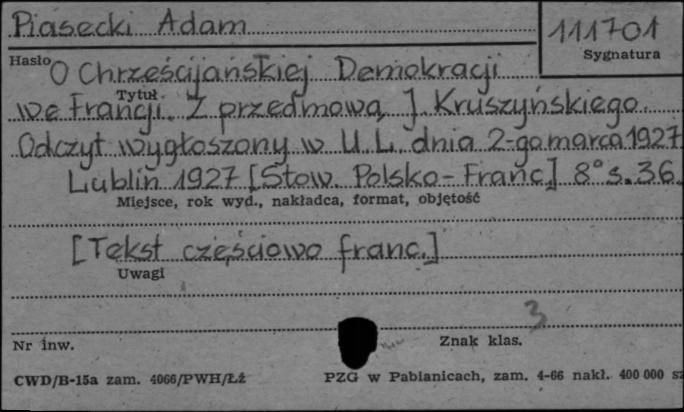 Piasecki Adam
111701
Hasło
Sygnatura
O Chrześcijańskiej Demokracji
Tytuł
we Francji. Z przedmową J. Kruszyńskiego.
Odczyt wygłoszony w U.L. dnia 2-go marca 1927
Lublin 1927 [Stow. Polsko-Franc.] 8° s. 36.
Miejsce, rok wyd., nakładca, format, objętość
[Tekst częściowo franc.]
Uwagi
3
Nr inw.
Znak klas.
CWD/B-15a zam. 4066/PWH/Łź
PZG w Pabianicach, zam. 4-66 nakł. 400 000 sz